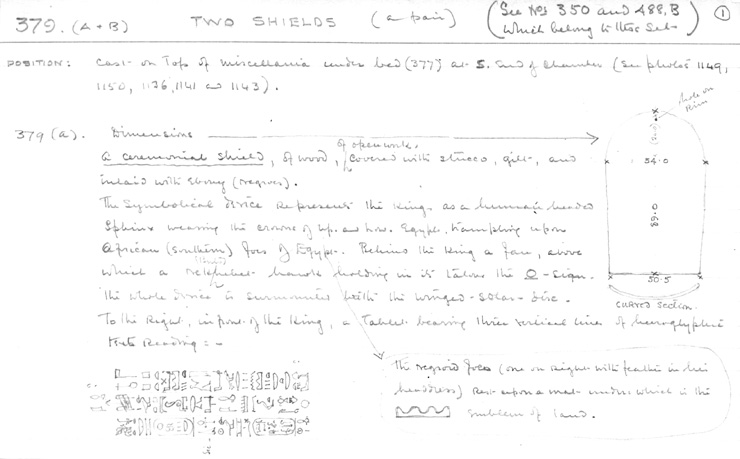 379. (A + B) TWO SHIELDS (a pair) (See Nos 350 and 488, B
which belong to this Set) ①
POSITION: Cast on top of miscellania under bed (377) at S. end of Chamber (See photos 1149,
1150, 1136, 1141 and 1143).
379 (a). Dimensions
of openwork.
A ceremonial shield, of wood, covered with stucco, gilt, and
inlaid with ebony (negroes).
The Symbolical device represents the King as a human headed
Sphinx wearing the crowns of Up. and Low. Egypt, trampling upon
African (southern) foes of Egypt. Behind the King a fan, above
which a hawk holding in its talons the Q-sign.
The whole device is surmounted with the winged-solar-disc.
To the Right, in front of the King, a tablet bearing three vertical lines of hieroglyphic
texts Reading:-
hole on
Rim
54.0
89.0
50.5
CURVED Section.
The negroid foes (one on Right with feather in his
headdress) Rest upon a mat under which is the
emblem of land.